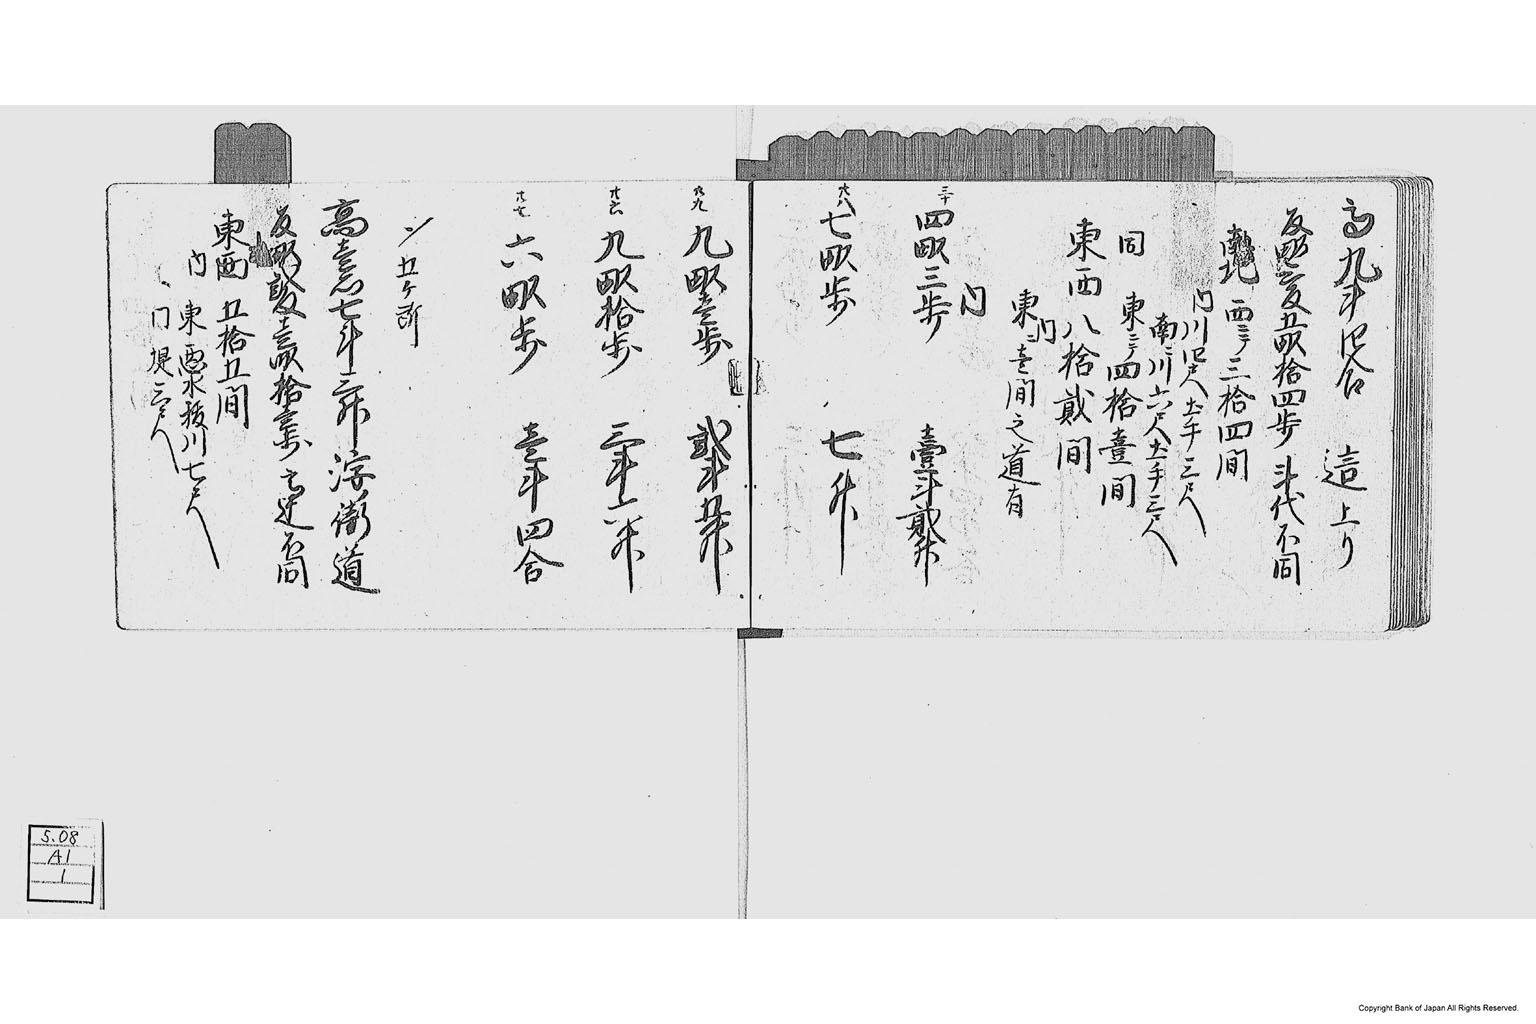 高九斗四合 這上り
反畝五畝拾四歩 斗代不同
西ニ而三拾四間
内川四尺土手三尺
南ニ川六尺土手三尺
同 東ニ而四拾壹間
東西八拾貳間
内
東ニ壹間之道有
内
三十 四畝三歩 壹斗貳升
廿八 七畝歩 七升
廿九 九畝壱歩 貳斗五升
廿六 九畝拾歩 三斗六升
廿七 六畝歩 壱斗四合
〆五ヶ所
高壱石七斗三升 字街道
反畝 壱畝拾壱歩 不同
東西 五拾五間
内 東悪水抜川七尺
堤三尺
5.08
A1
1
Copyright Bank of Japan All Rights Reserved.